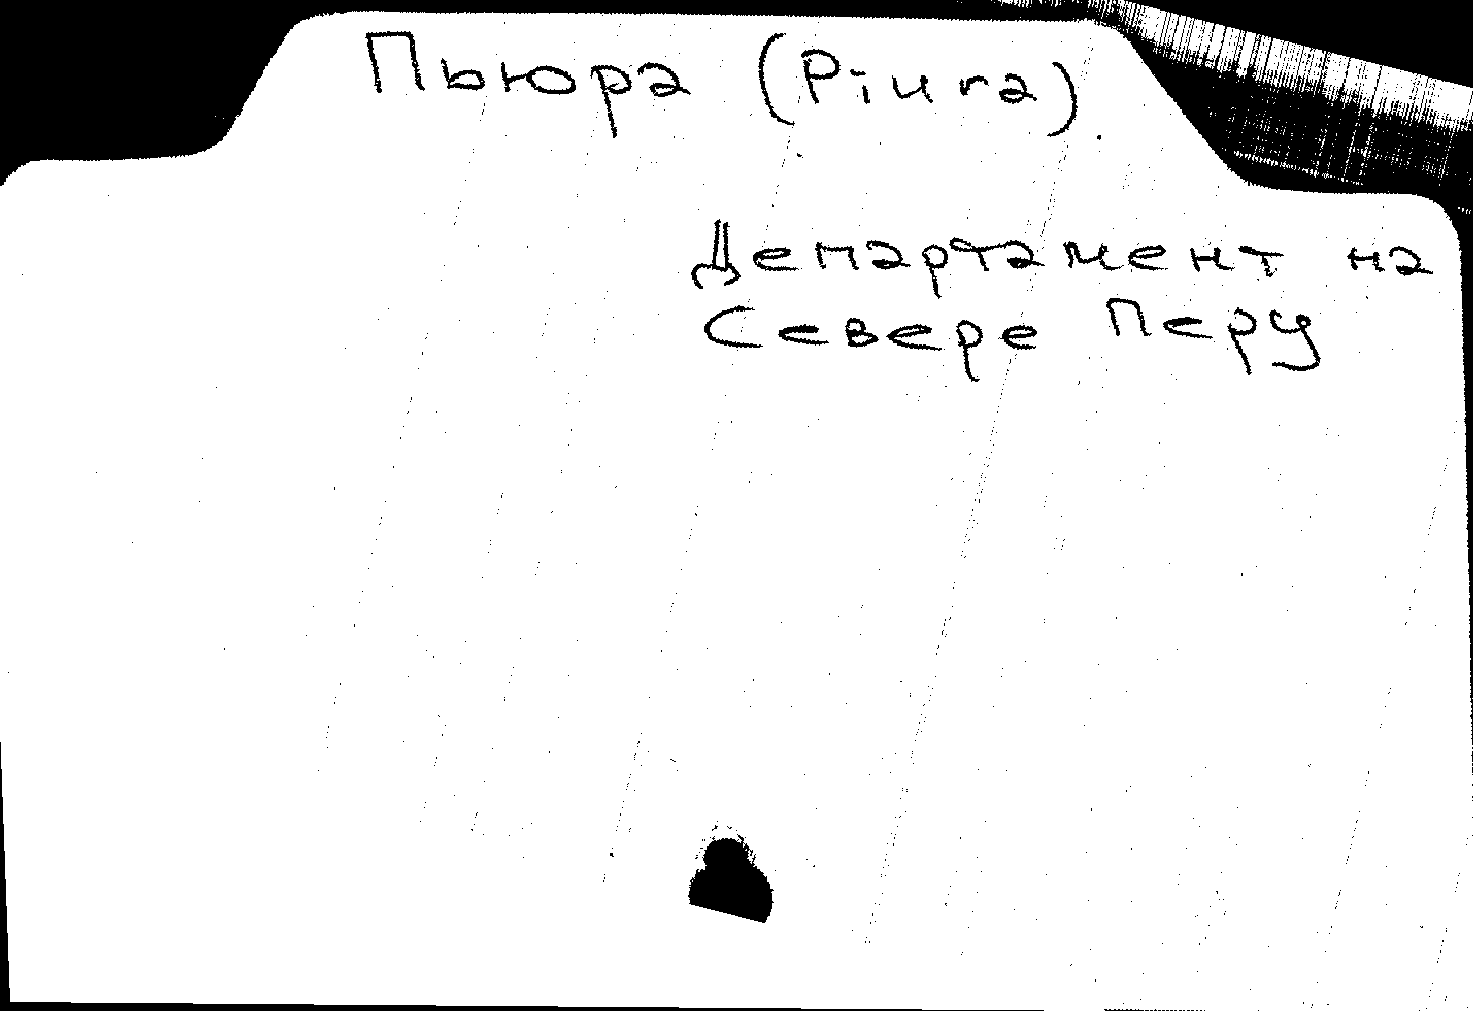 Пьюра (Piura)
Департамент на
Севере Перу